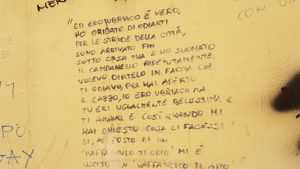 MER
"ED ERO UBRIACO È VERO,
HO GRIDATO DI ODIARTI
PER LE STRADE DELLA CITTÀ,
SONO ARRIVATO FIN
SOTTO CASA TUA E HO SUONATO
IL CAMPANELLO RIPETUTAMENTE.
VOLEVO DIRTELO IN FACCIA CHE
TI ODIAVO, POI HAI APERTO
E CAZZO, IO ERO UBRIACO MA
TU ERI UGUALMENTE BELLISSIMA E
TI AMAVO. E COSÌ QUANDO MI
HAI CHIESTO COSA CI FACESSI
LÌ, AL POSTO DI UN
TI ODIO" MI È
USCITO UN VAFFANCULO TI AMO